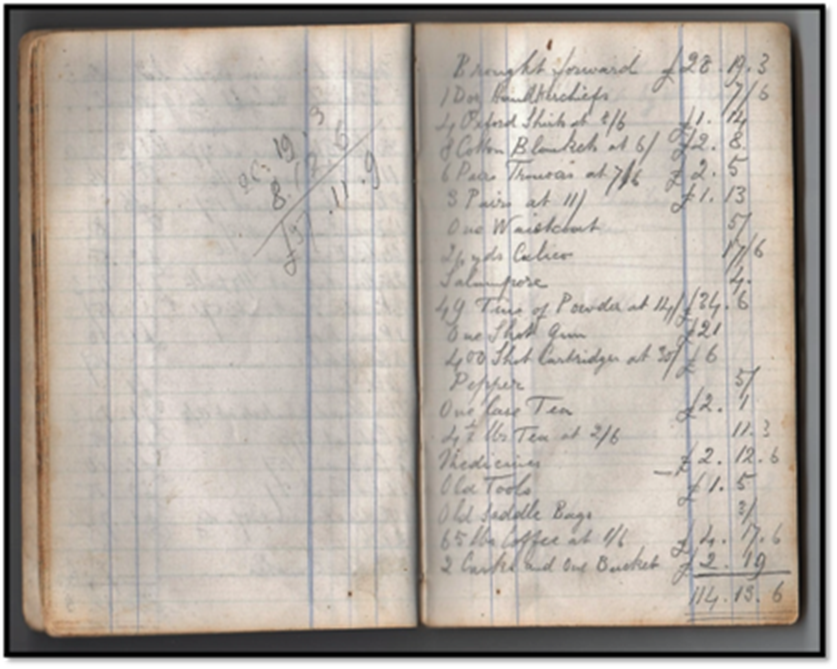 19. 3
8. 12 6
.11.9
Brought forward £28.19.3
1 Doz Handkerchiefs 7/6
4 Oxford Shirts at 8/6 £1. 14
8 Cotton Blankets at 6/ £2. 8.
6 Pairs Trousers at 7/6 £2. 5
3 Pairs at 11/ £1. 13
One Waistcoat 5/
yds Calico 17/6
Salampore 4.
49 Tins of Powder at 14/ £34. 6
One Shot Gun £21
400 Shot Cartridges at 30/ £6
Pepper 5/
One Case Tea £2. 1
4½ lbs Tea at 2/6 11.3
Medicines £2. 12. 6
Old Tools £1. 5
Old Saddle Bags 3/
65 lbs Coffee at 1/6 £4. 17. 6
2 Casks and One Bucket £2. 19
114. 13. 6